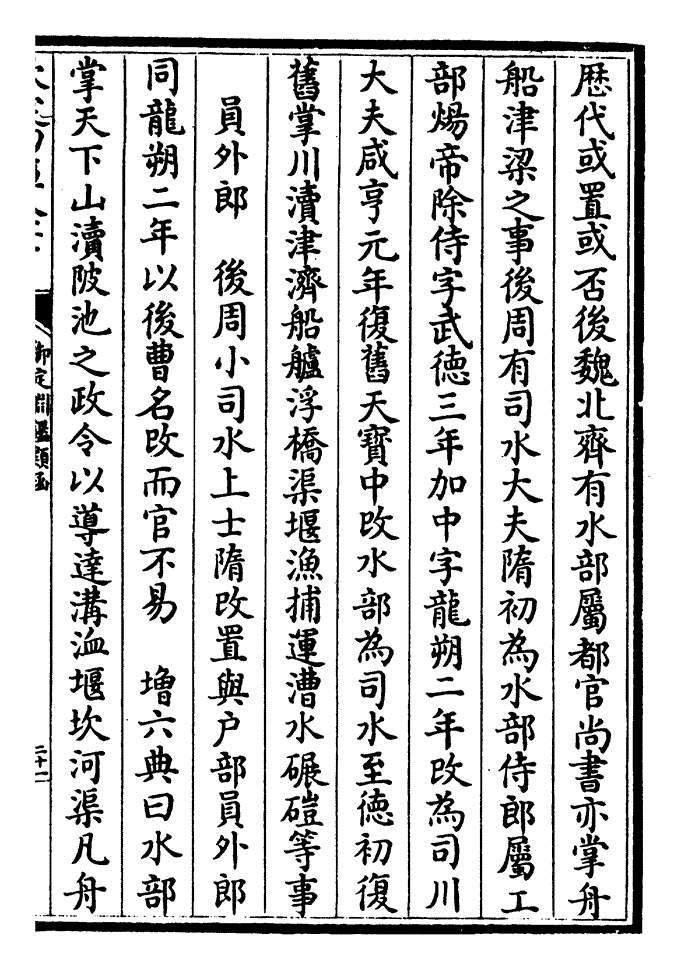 歴代或置或否後魏北齊有水部屬都官尚書亦掌舟
船津梁之事後周有司水大夫隋初為水部侍郎屬工
部煬帝除侍字武徳三年加中字龍朔二年改為司川
大夫咸亨元年復舊天寳中改水部為司水至徳初復
舊掌川瀆津濟船艫浮橋渠堰漁捕運漕水碾磑等事
員外郎　後周小司水上士隋改置與户部員外郎
同龍朔二年以後曹名改而官不易　増六典曰水部
掌天下山瀆陂池之政令以導達溝洫堰坎河渠凡舟
御定淵鑑類函
二十一